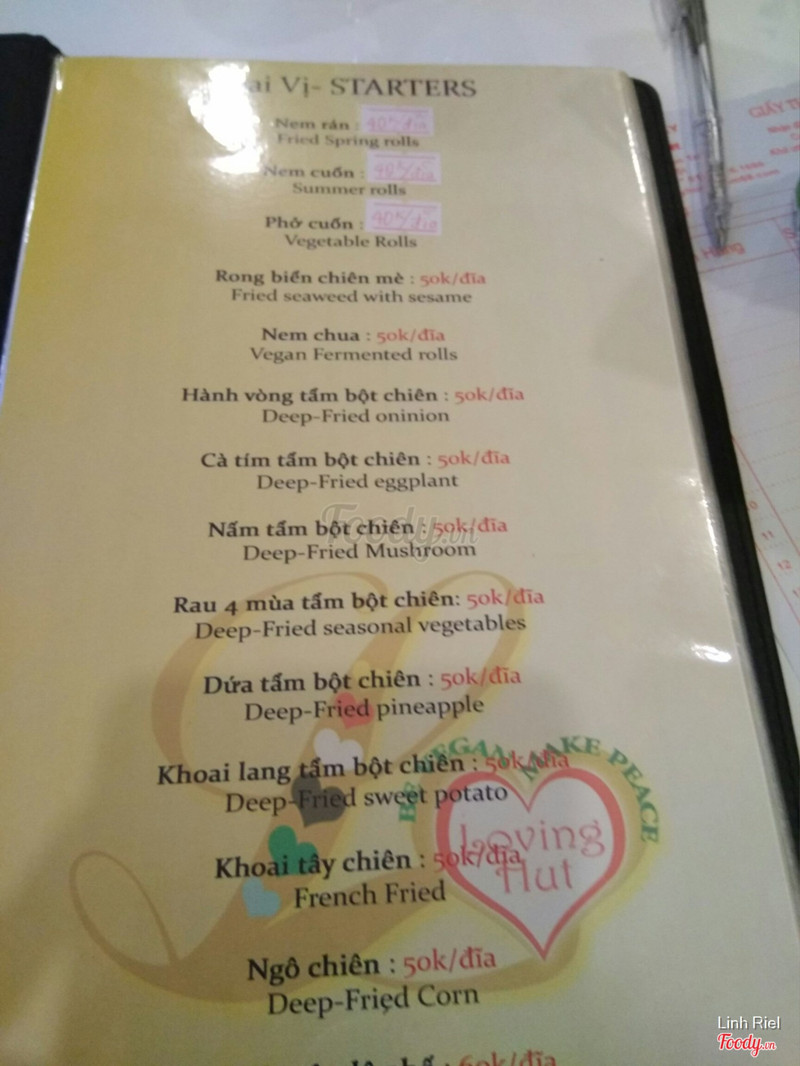 ai Vị- STARTERS
Nem rán : 40k/đĩa
Fried Spring rolls
Nem cuốn : 40k/đĩa
Summer rolls
Phở cuốn : 40k/đĩa
Vegetable Rolls
Rong biển chiên mè : 50k/đĩa
Fried seaweed with sesame
Nem chua : 50k/đĩa
Vegan Fermented rolls
Hành vòng tẩm bột chiên : 50k/đĩa
Deep-Fried oninion
Cà tím tẩm bột chiên : 50k/đĩa
Deep-Fried eggplant
Nấm tẩm bột chiên : 50k/đĩa
Deep-Fried Mushroom
Foody.vn
Rau 4 mùa tẩm bột chiên: 50k/đĩa
Deep-Fried seasonal vegetables
Dứa tẩm bột chiên : 50k/đĩa
Deep-Fried pineapple
Khoai lang tẩm bột chiên : 50k/đĩa
Deep-Fried sweet potato
BE VEGAN MAKE PEACE
Loving Hut
Khoai tây chiên : 50k/đĩa
French Fried
Ngô chiên : 50k/đĩa
Deep-Fried Corn
60k/đĩa
GIẤY
11
12
Linh Riel
Foody.vn